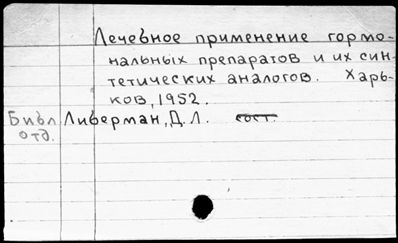 Лечебное применение гормо-
нальных препаратов и их син-
тетических аналогов. Харь-
ков, 1952.
Библ. Либерман, Д.Л. сост.
отд.